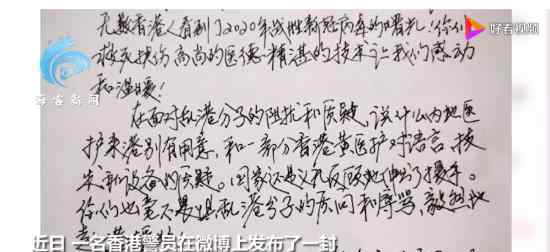 好看视频
无数香港人看到了2020年战胜新冠病毒的曙光!你们
救死扶伤高尚的医德 精湛的技术让我们感动
和温暖!
在面对乱港分子的阻扰和质疑,说什么内地医
护来港别有用意,和一部分香港黄医护对语言、技
术和设备的质疑。国家还是义无反顾地伸出了援手。
你们也毫不畏惧乱港分子的质问和辱骂,毅然地
近日 一名香港警员在微博上发布了一封